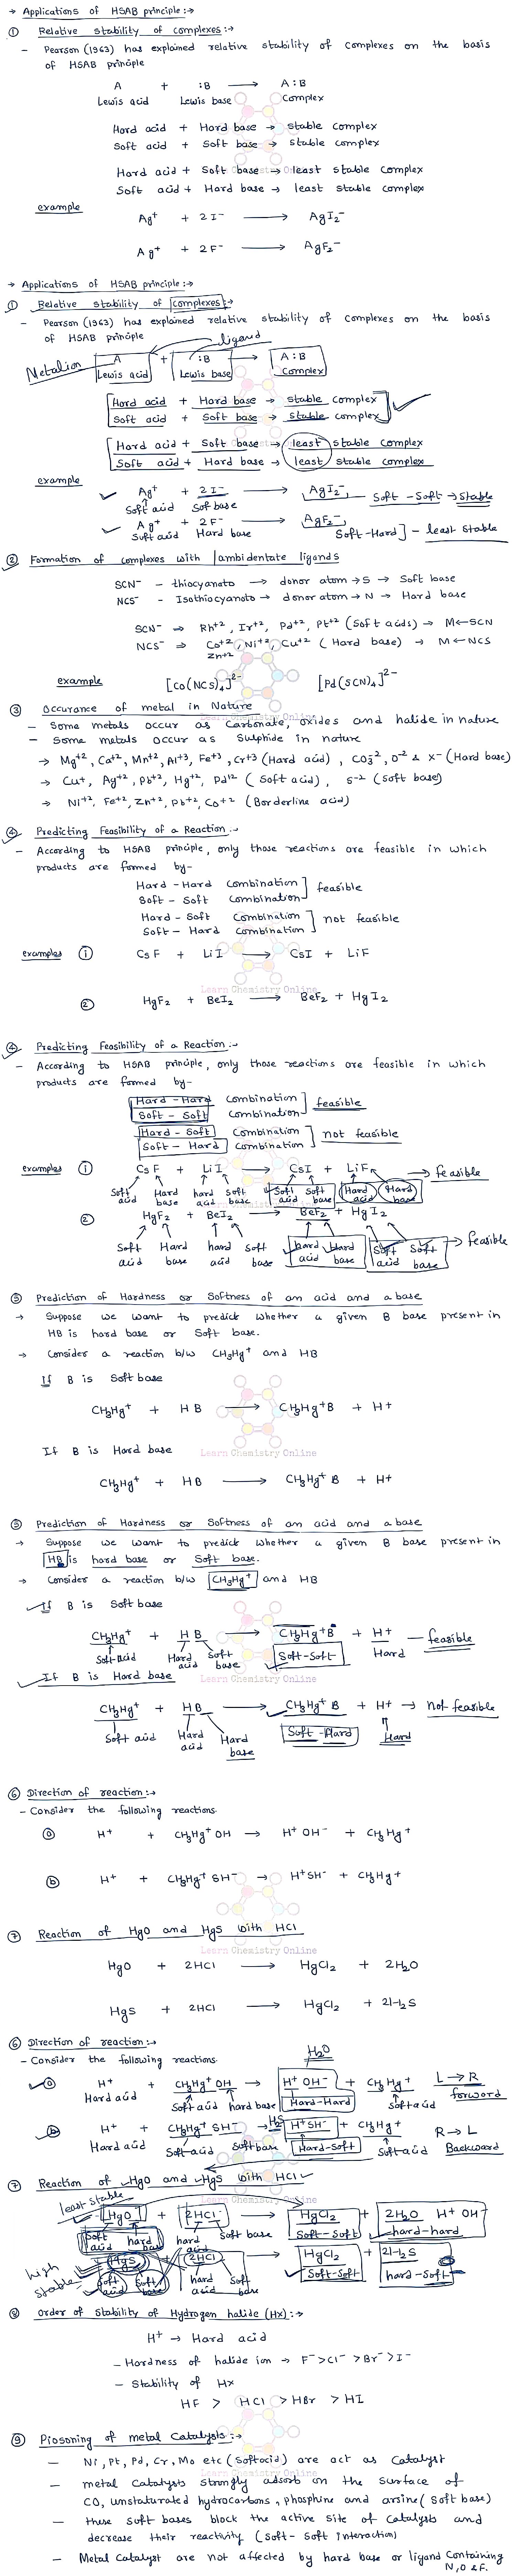 → Applications of HSAB principle:→
① Relative stability of complexes:-
- Pearson (1963) has explained relative stability of complexes on the basis
of HSAB principle
A + :B → A:B
Lewis acid Lewis base Complex
Hard acid + Hard base → stable complex
Soft acid + Soft base → stable complex
Hard acid + Soft base → least stable complex
Soft acid + Hard base → least stable complex
example
Ag⁺ + 2I⁻ → AgI₂⁻
Ag⁺ + 2F⁻ → AgF₂⁻
→ Applications of HSAB principle:→
① Relative stability of complexes:→
- Pearson (1963) has explained relative stability of complexes on the basis
of HSAB principle
ligand
Metal ion A + :B → A:B
Lewis acid Lewis base Complex
Hard acid + Hard base → stable complex
Soft acid + Soft base → stable complex
Hard acid + Soft base → least stable complex
Soft acid + Hard base → least stable complex
example
Ag⁺ + 2I⁻ → AgI₂⁻ Soft-Soft → stable
Soft acid Sof base
Ag⁺ + 2F⁻ → AgF₂⁻
Soft acid Hard base Soft-Hard] - least stable
② Formation of complexes with ambidentate ligands
SCN⁻ - thiocyanato → donor atom → S → Soft base
NCS⁻ - Isothiocyanato → donor atom → N → Hard base
SCN⁻ ⇒ Rh⁺², Ir⁺², Pd⁺², Pt⁺² (Soft acids) → M←SCN
NCS⁻ ⇒ Co⁺², Ni⁺², Cu⁺² (Hard base) → M←NCS
Zn⁺²
example [Co(NCS)₄]²⁻ [Pd(SCN)₄]²⁻
③ Occurance of metal in Nature
Learn Chemistry Online
- Some metals occur as Carbonate, oxides and halide in nature
- Some metals occur as Sulphide in nature
→ Mg⁺², Ca⁺², Mn⁺², Al⁺³, Fe⁺³, Cr⁺³ (Hard acid), CO₃⁻², O⁻² & X⁻ (Hard base)
→ Cu⁺, Ag⁺², Pb⁺², Hg⁺², Pd⁺² (Soft acid), S⁻² (Soft base)
→ Ni⁺², Fe⁺², Zn⁺², Pb⁺², Co⁺² (Borderline acid)
④ Predicting Feasibility of a Reaction:-
- According to HSAB principle, only those reactions are feasible in which
products are formed by-
Hard-Hard Combination] feasible
Soft-Soft Combination
Hard-Soft Combination] not feasible
Soft-Hard Combination
examples ① CsF + LiI → CsI + LiF
Learn Chemistry Online
② HgF₂ + BeI₂ → BeF₂ + HgI₂
④ Predicting Feasibility of a Reaction:-
- According to HSAB principle, only those reactions are feasible in which
products are formed by-
Hard-Hard Combination] feasible
Soft-Soft Combination
Hard-Soft Combination] not feasible
Soft-Hard Combination
examples ① CsF + LiI → CsI + LiF → feasible
Soft acid Hard base hard acid Soft base Soft acid Soft base Hard acid Hard base
② HgF₂ + BeI₂ → BeF₂ + HgI₂
Soft acid Hard base hard acid Soft base hard acid Hard base Soft acid Soft base → feasible
⑤ Prediction of Hardness or Softness of an acid and a base
→ Suppose we want to predict whether a given B base present in
HB is hard base or Soft base.
→ Consider a reaction b/w CH₃Hg⁺ and HB
If B is Soft base
CH₃Hg⁺ + HB → CH₃Hg⁺B + H⁺
If B is Hard base
Learn Chemistry Online
CH₃Hg⁺ + HB → CH₃Hg⁺B + H⁺
⑤ Prediction of Hardness or Softness of an acid and a base
→ Suppose we want to predict whether a given B base present in
HB is hard base or Soft base.
→ Consider a reaction b/w CH₃Hg⁺ and HB
If B is Soft base
CH₃Hg⁺ + HB → CH₃Hg⁺B + H⁺ - feasible
Soft acid Hard acid Soft base Soft-Soft Hard
If B is Hard base
Learn Chemistry Online
CH₃Hg⁺ + HB → CH₃Hg⁺B + H⁺ → Not feasible
Soft acid Hard acid Hard base Soft-Hard Hard
⑥ Direction of reaction:→
- Consider the following reactions.
ⓐ H⁺ + CH₃Hg⁺OH → H⁺OH⁻ + CH₃Hg⁺
ⓑ H⁺ + CH₃Hg⁺SH⁻ → H⁺SH⁻ + CH₃Hg⁺
⑦ Reaction of HgO and HgS with HCl
Learn Chemistry Online
HgO + 2HCl → HgCl₂ + 2H₂O
HgS + 2HCl → HgCl₂ + 2H₂S
⑥ Direction of reaction:→
- Consider the following reactions.
H₂O
ⓐ H⁺ + CH₃Hg⁺OH → H⁺OH⁻ + CH₃Hg⁺ L→R
Hard acid Soft acid hard base Hard-Hard Soft acid forword
ⓑ H⁺ + CH₃Hg⁺SH⁻ → H₂S H⁺SH⁻ + CH₃Hg⁺ R→L
Hard acid Soft acid Soft base Hard-Soft Soft acid Backward
⑦ Reaction of HgO and HgS with HCl
least stable
HgO + 2HCl → HgCl₂ + 2H₂O H⁺OH⁻
Soft acid hard base hard acid Soft base Soft-Soft hard-hard
high stable
HgS + 2HCl → HgCl₂ + 2H₂S
Soft acid Soft base hard acid Soft base Soft-Soft hard-Soft
⑧ Order of Stability of Hydrogen halide (HX):→
H⁺ → Hard acid
- Hardness of halide ion → F⁻>Cl⁻>Br⁻>I⁻
- Stability of HX
HF > HCl > HBr > HI
⑨ Piosoning of metal Catalysts:→
- Ni, Pt, Pd, Cr, Mo etc (Soft acid) are act as Catalyst
- metal Catalysts strongly adsorb on the surface of
CO, unstaturated hydrocarbons, phosphine and arsine (Soft base)
- these soft bases block the active site of Catalysts and
decrease their reactivity (Soft-Soft interaction)
- Metal Catalyst are not affected by hard base or ligand Containing
N, O & F.